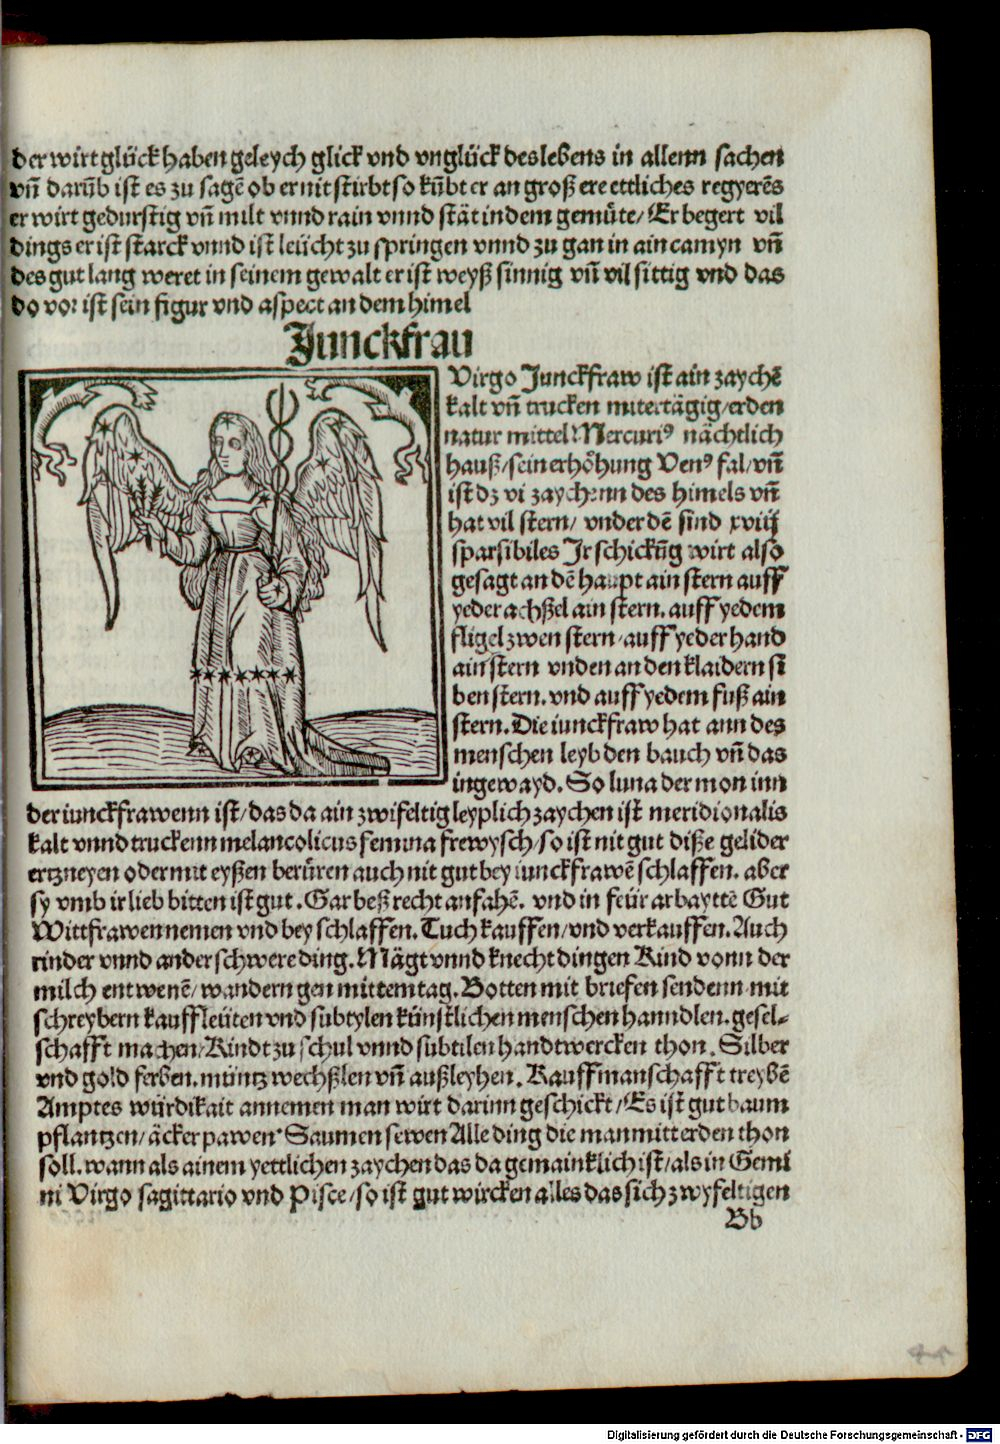 der wirt glück haben geleych glick vnd vnglück des lebens in allenn sachen
vn̄ darūb ist es zu sagē ob er nit stirbt so kūbt er an groß ere ettliches regyerēs
er wirt gedurstig vn̄ milt vnnd rain vnnd stät in dem gemüte/ Er begert vil
dings er ist starck vnnd ist leücht zu springen vnnd zu gan in ain camyn vn̄
des gut lang weret in seinem gewalt er ist weyß sinnig vn̄ vil sittig vnd das
do vor ist sein figur vnd aspect an dem himel
Junckfrau
Virgo Junckfraw ist ain zaychē
kalt vn̄ trucken mitertägig/erden
natur mittel Mercuriꝰ nächtlich
hauß/sein erhöhung Venꝰ fal/vn̄
ist dz vi zaychenn des himels vn̄
hat vil stern/ vnder dē sind xviij
sparsibiles Jr schickūg wirt also
gesagt an dē haupt ain stern auff
yeder achßel ain stern. auff yedem
fligel zwen stern/auff yeder hand
ain stern vnden an den klaidern si
ben stern. vnd auff yedem fuß ain
stern. Die iunckfraw hat ann des
menschen leyb den bauch vn̄ das
ingewayd. So luna der mon inn
der iunckfrawenn ist/das da ain zwifeltig leyplich zaychen ist meridionalis
kalt vnnd truckenn melancolicus femina frewysch/so ist nit gut diße gelider
ertzneyen oder mit eyßen berüren auch nit gut bey iunckfrawē schlaffen. aber
sy vmb ir lieb bitten ist gut. Gar beß recht anfahē. vnd in feür arbayttē Gut
Wittfrawen nemen vnd bey schlaffen. Tuch kauffen/vnd verkauffen. Auch
rinder vnnd ander schwere ding. Mägt vnnd knecht dingen Kind vonn der
milch entwenē/wandern gen mittemtag. Botten mit briefen sendenn mit
schreybern kauffleüten vnd subtylen künstlichen menschen hanndlen. gesel⸗
schafft machen/Kindt zu schul vnnd subtilen handtwercken thon. Silber
vnd gold ferben. müntz wechßlen vn̄ außleyhen. Kauffmanschafft treybē
Amptes würdikait annemen man wirt darinn geschickt/Es ist gut baum
pflantzen/äcker pawen Saumen sewen Alle ding die man mitt erden thon
soll. wann als ainem yettlichen zaychen das da gemainklich ist/als in Gemi
ni Virgo sagittario vnd Pisce/so ist gut wircken alles das sich zwyfeltigen
Bb
Digitalisierung gefördert durch die Deutsche Forschungsgemeinschaft - DFG